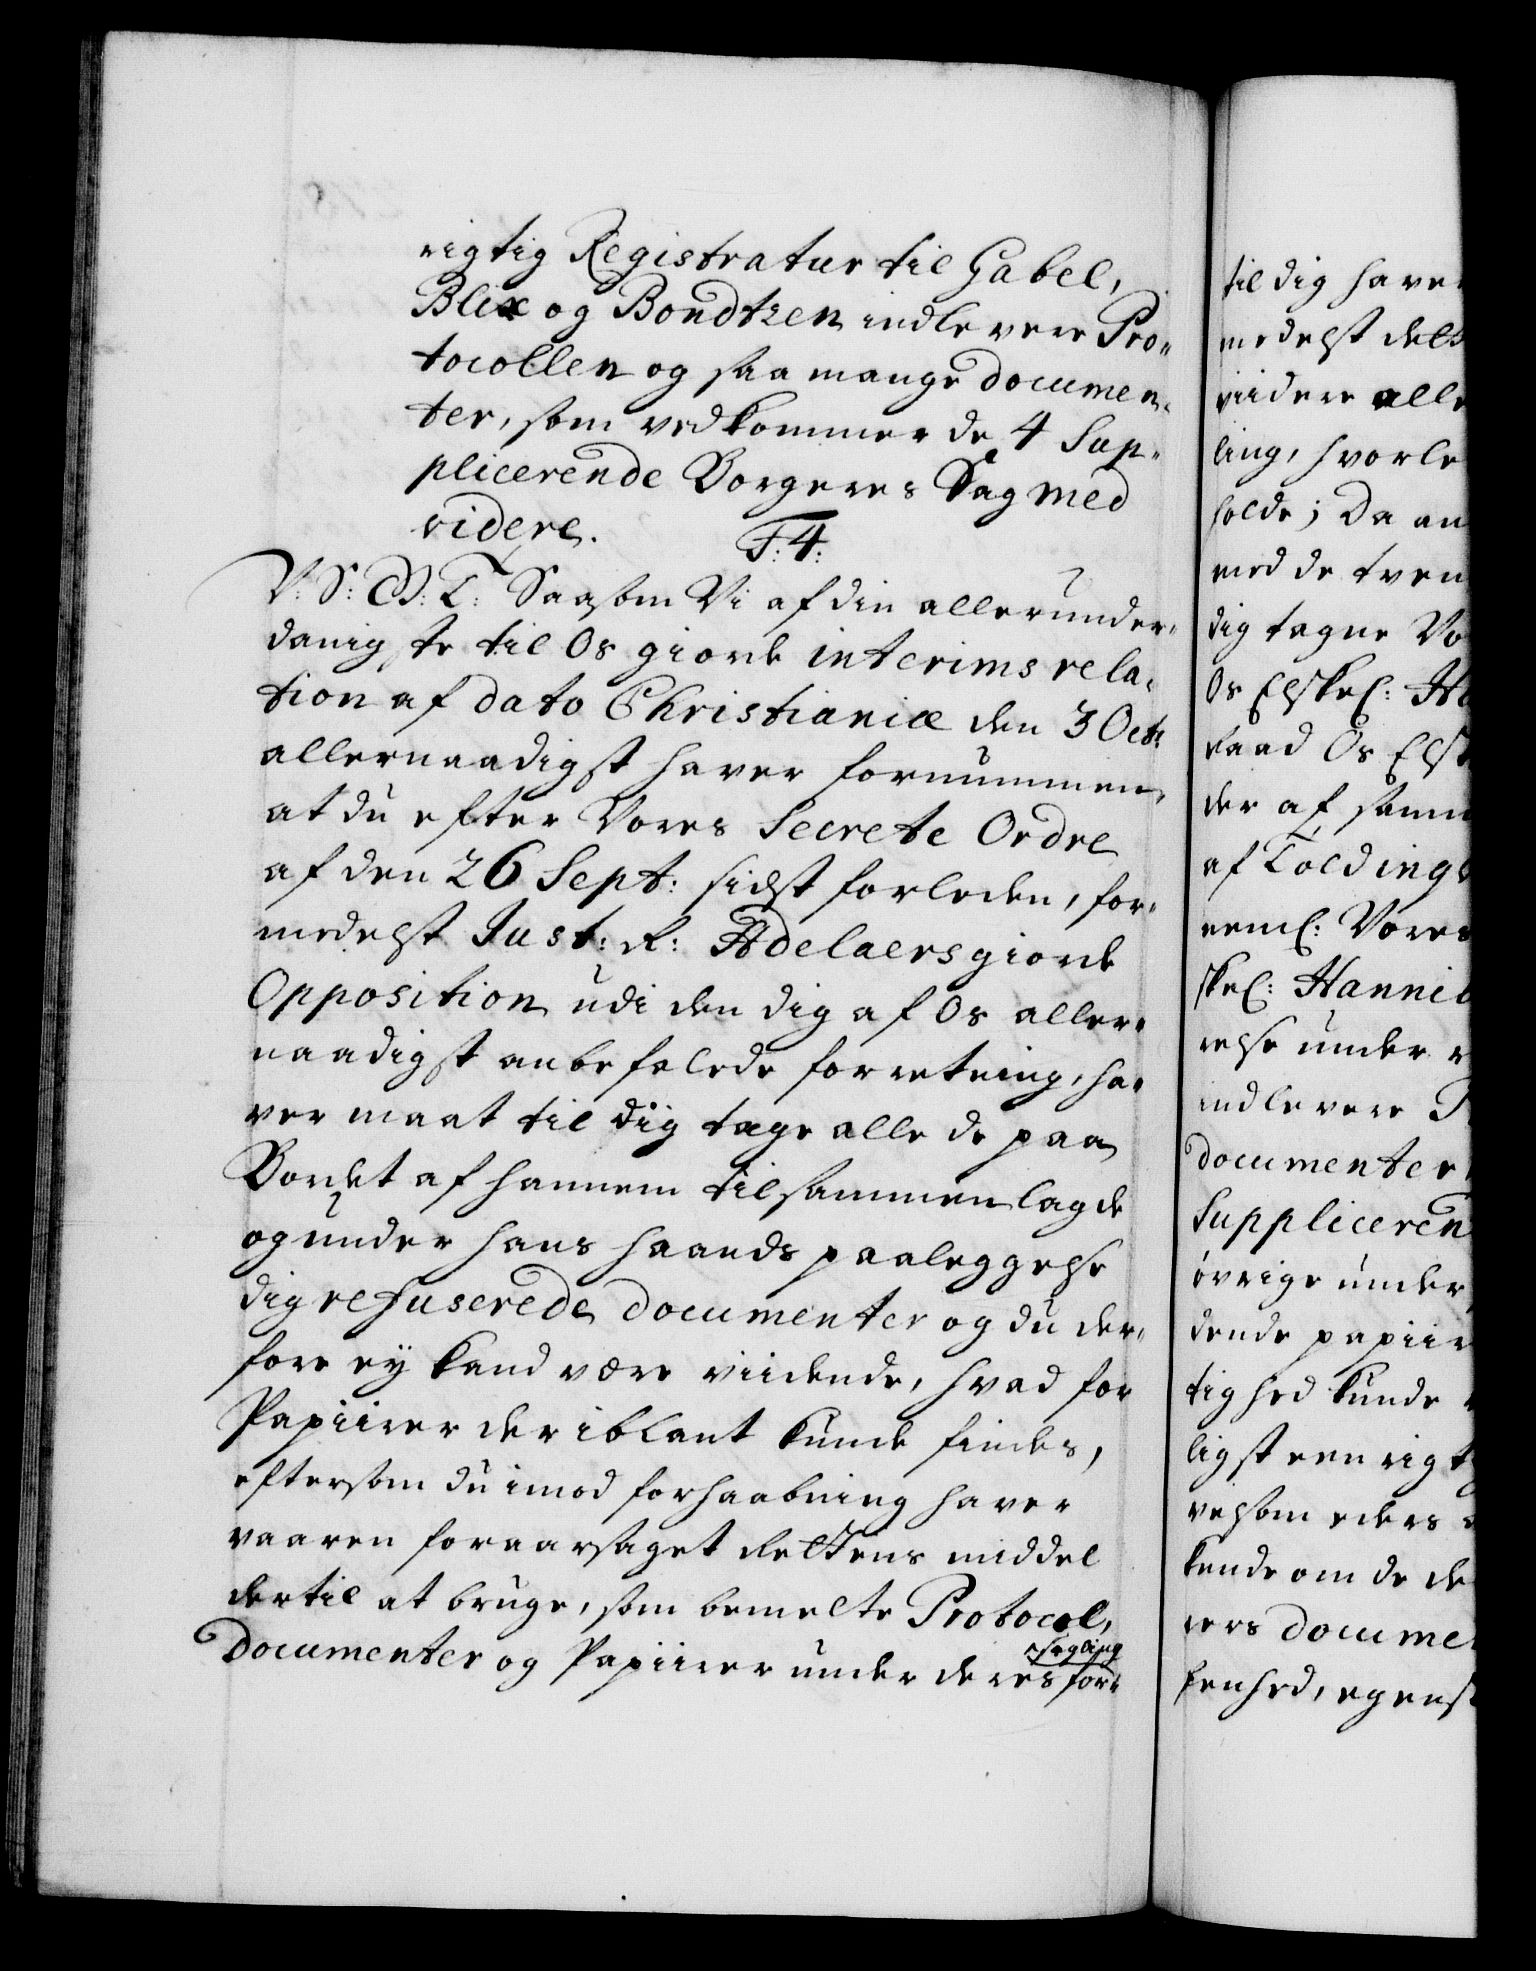 rigtig Registratur til Gabel,
Blix og Bondtzen indlevere Pro„
tocollen og saa mange documen„
ter, som vedkommer de 4 Sup„
plicerende Borgeres Sag med
videre.
F: 4:
V: S: G: T: Saasom Vi af din allerunder„
danigste til Os giorde interims rela„
tion af dato Christianiæ den 3 Octr:
allernaadigst haver fornummen,
at du efter Vores Secrete Ordre
af den 26 Sept: sidst forleden, for„
medelst Just: R: Adelaers giorde
Opposition udi den dig af Os aller„
naadigst anbefalede forretning, ha„
ver maat til dig tage alle de paa
Bordet af hannem tilsammen lagde
og under hans haands paaleggelse
dig refuserede documenter og du der„
fore ey kand være viidende, hvad for
Papiirer der iblant kunde findes,
eftersom du imod forhaabning haver
vaaren foraarsaget dettens middel
dertil at bruge, som bemelte Protocol,
documenter og Papiirer under deres for„
segling
til dig have
medelst dett
viidere alle
ling, hvorle
holde; Da an
med de tven
dig tagne Vo
Os Elskel: H
raad Os Elsk
der af samm
af Tolding
neml: Vores
skel: Hannib
relse under
indlevere P
documenter
Suppliceren
øvrige under
dende papiir
tighed kunde
ligst een rigt
velsom eders
kende om de de
rers docume
fenhed, egens